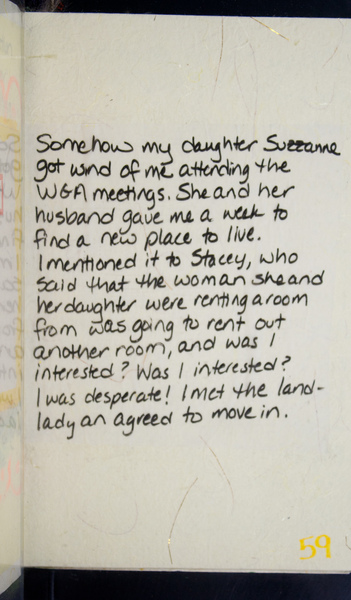 Somehow my daughter Suzzanne
got wind of me attending the
WGA meetings. She and her
husband gave me a week to
find a new place to live.
I mentioned it to Stacey, who
said that the woman she and
her daughter were renting a room
from was going to rent out
another room, and was I
interested? Was I interested?
I was desperate! I met the land-
lady an agreed to move in.
59